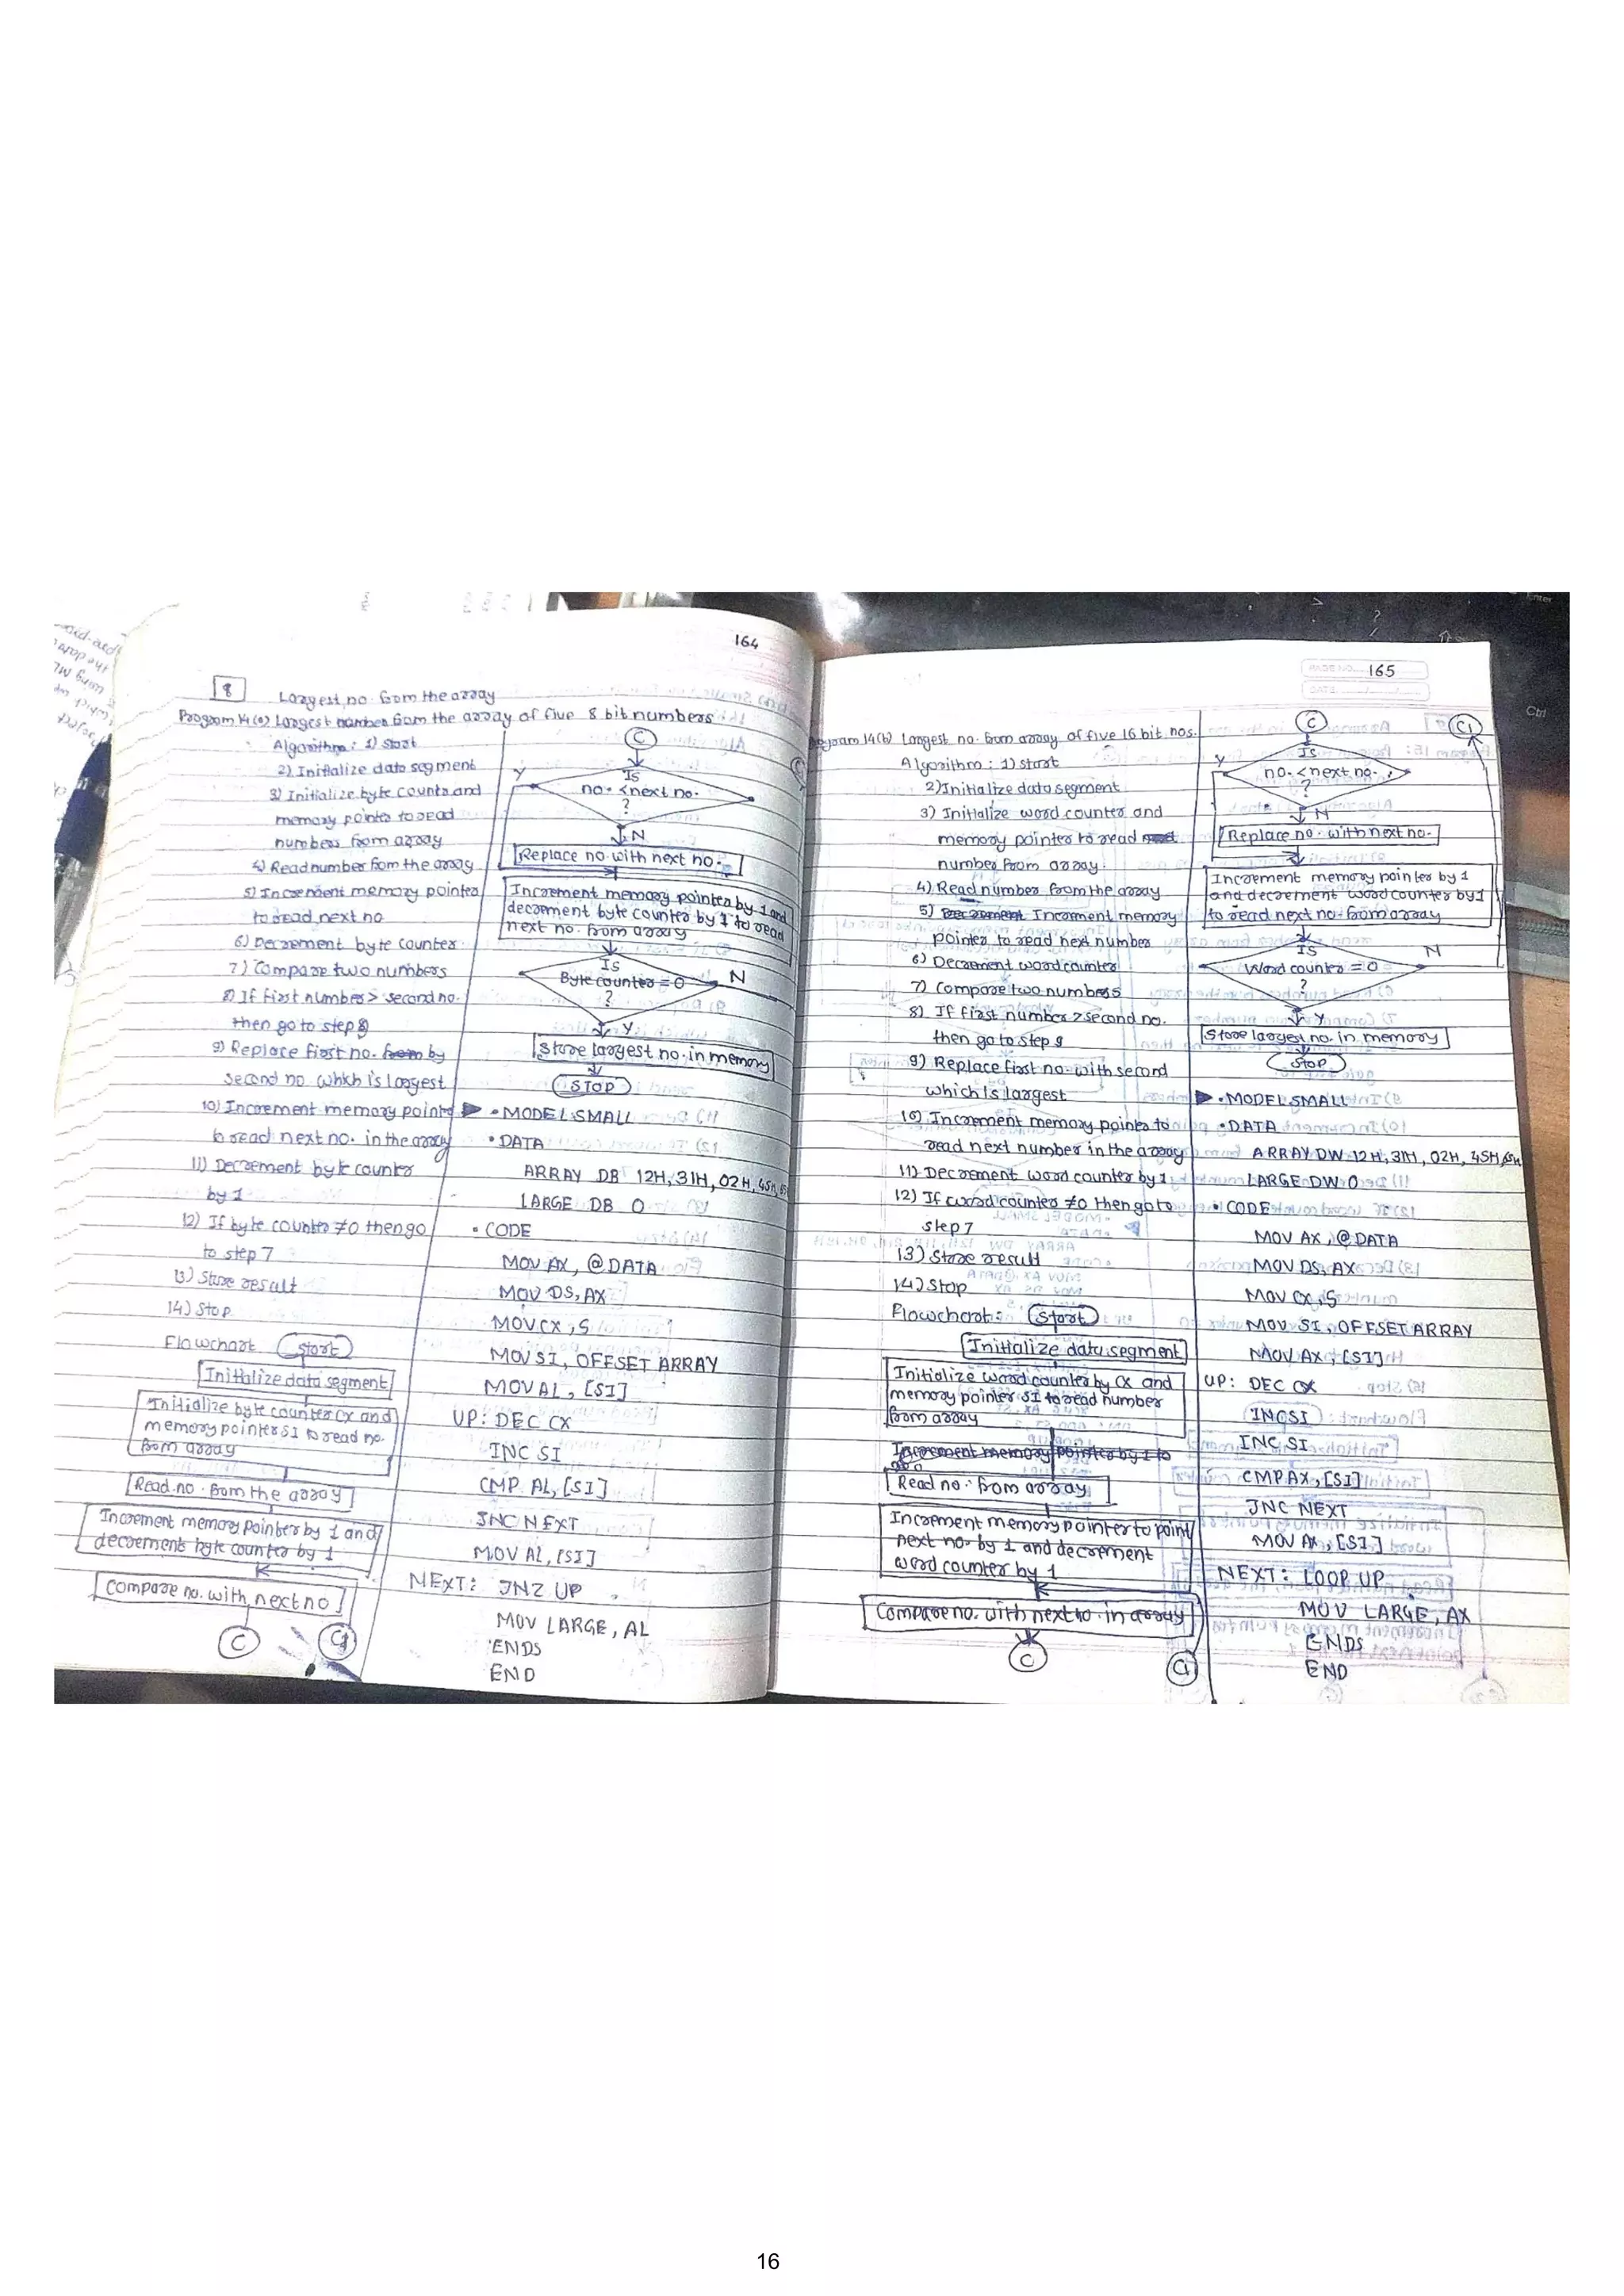 164
8
Largest no. from the array
Program 14(a) Largest number from the array of five 8 bit numbers
Algorithm: 1) Start
2) Initialize data segment
3) Initialize byte counter and
memory pointer to read
numbers from array
4) Read number from the array
5) Increment memory pointer
to read next no
6) Decrement byte counter
7) Compare two numbers
8) If first number > second no.
then go to step 9
9) Replace first no. from by
second no which is largest
10) Increment memory pointer
to read next no. in the array
11) Decrement byte counter
by 1
12) If byte counter ≠0 then go
to step 7
13) Store result
14) Stop
Flowchart Start
Initialize data segment
Initialize byte counter CX and
memory pointer SI to read no.
from array
Read no. from the array
Increment memory pointer by 1 and
decrement byte counter by 1
Compare no. with next no
C
C1
C
Is
no. < next no.
?
Y
N
Replace no with next no.
Increment memory pointer by 1 and
decrement byte counter by 1 to read
next no. from array
Is
Byte counter = 0
?
N
Y
Store largest no. in memory
STOP
.MODEL SMALL
.DATA
ARRAY DB 12H, 31H, 02H, 45H, 65H
LARGE DB 0
.CODE
MOV AX, @DATA
MOV DS, AX
MOV CX, 5
MOV SI, OFFSET ARRAY
MOV AL, [SI]
UP: DEC CX
INC SI
CMP AL, [SI]
JNC NEXT
MOV AL, [SI]
NEXT: JNZ UP
MOV LARGE, AL
ENDS
END
165
Program 14(b) Largest no. from array of five 16 bit nos.
Algorithm: 1) Start
2) Initialize data segment
3) Initialize word counter and
memory pointer to read read
number from array.
4) Read number from the array
5) Decrement Increment memory
pointer to read next number
6) Decrement word counter
7) Compare two numbers
8) If first number > second no.
then go to step 9
9) Replace first no. with second
which is largest
10) Increment memory pointer to
read next number in the array
11) Decrement word counter by 1
12) If word counter ≠0 then go to
step 7
13) Store result
14) Stop
Flowchart: Start
Initialize data segment
Initialize word counter by CX and
memory pointer SI to read number
from array
Increment memory pointer by 1 to
Read no. from array
Increment memory pointer to point
next no. by 1 and decrement
word counter by 1
Compare no. with next no. in array
C
C1
C
C1
Is
no. < next no.
?
Y
N
Replace no. with next no.
Increment memory pointer by 1
and decrement word counter by 1
to read next no. from array
Is
Word counter = 0
?
N
Y
Store largest no. in memory
Stop
.MODEL SMALL
.DATA
ARRAY DW 12H, 31H, 02H, 45H, 65H
LARGE DW 0
.CODE
MOV AX, @DATA
MOV DS, AX
MOV CX, 5
MOV SI, OFFSET ARRAY
MOV AX, [SI]
UP: DEC CX
INC SI
INC SI
CMP AX, [SI]
JNC NEXT
MOV AX, [SI]
NEXT: LOOP UP
MOV LARGE, AX
ENDS
END
Ctrl
16